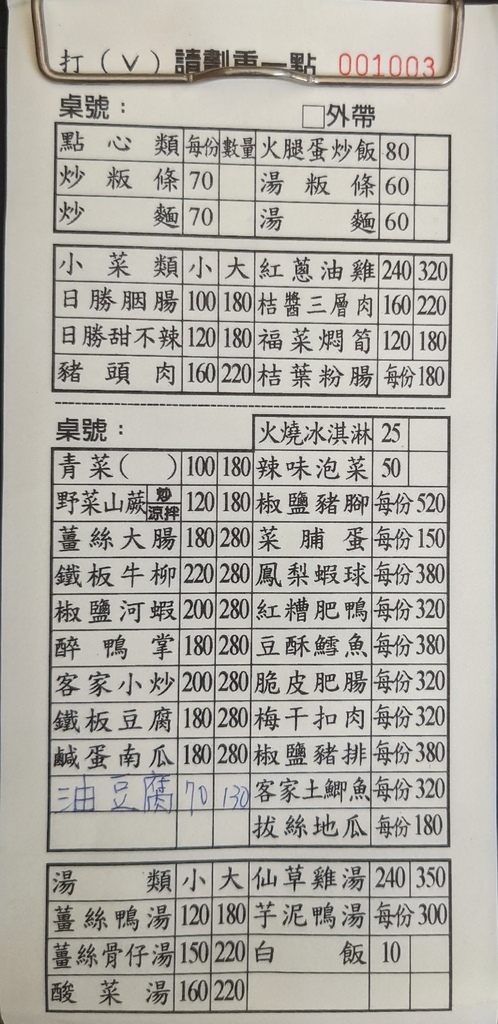 打（V）請劃重一點 001003
桌號： □外帶
點心類 每份 數量 火腿蛋炒飯 80
炒粄條 70 湯粄條 60
炒麵 70 湯麵 60
小菜類 小 大 紅蔥油雞 240 320
日勝胭腸 100 180 桔醬三層肉 160 220
日勝甜不辣 120 180 福菜燜筍 120 180
豬頭肉 160 220 桔葉粉腸 每份180
桌號： 火燒冰淇淋 25
青菜( ) 100 180 辣味泡菜 50
野菜山蕨 炒 涼拌 120 180 椒鹽豬腳 每份520
薑絲大腸 180 280 菜脯蛋 每份150
鐵板牛柳 220 280 鳳梨蝦球 每份380
椒鹽河蝦 200 280 紅糟肥鴨 每份320
醉鴨掌 180 280 豆酥鱈魚 每份380
客家小炒 200 280 脆皮肥腸 每份320
鐵板豆腐 180 280 梅干扣肉 每份320
鹹蛋南瓜 180 280 椒鹽豬排 每份380
油豆腐 70 130 客家土鯽魚 每份320
拔絲地瓜 每份180
湯類 小 大 仙草雞湯 240 350
薑絲鴨湯 120 180 芋泥鴨湯 每份300
薑絲骨仔湯 150 220 白飯 10
酸菜湯 160 220